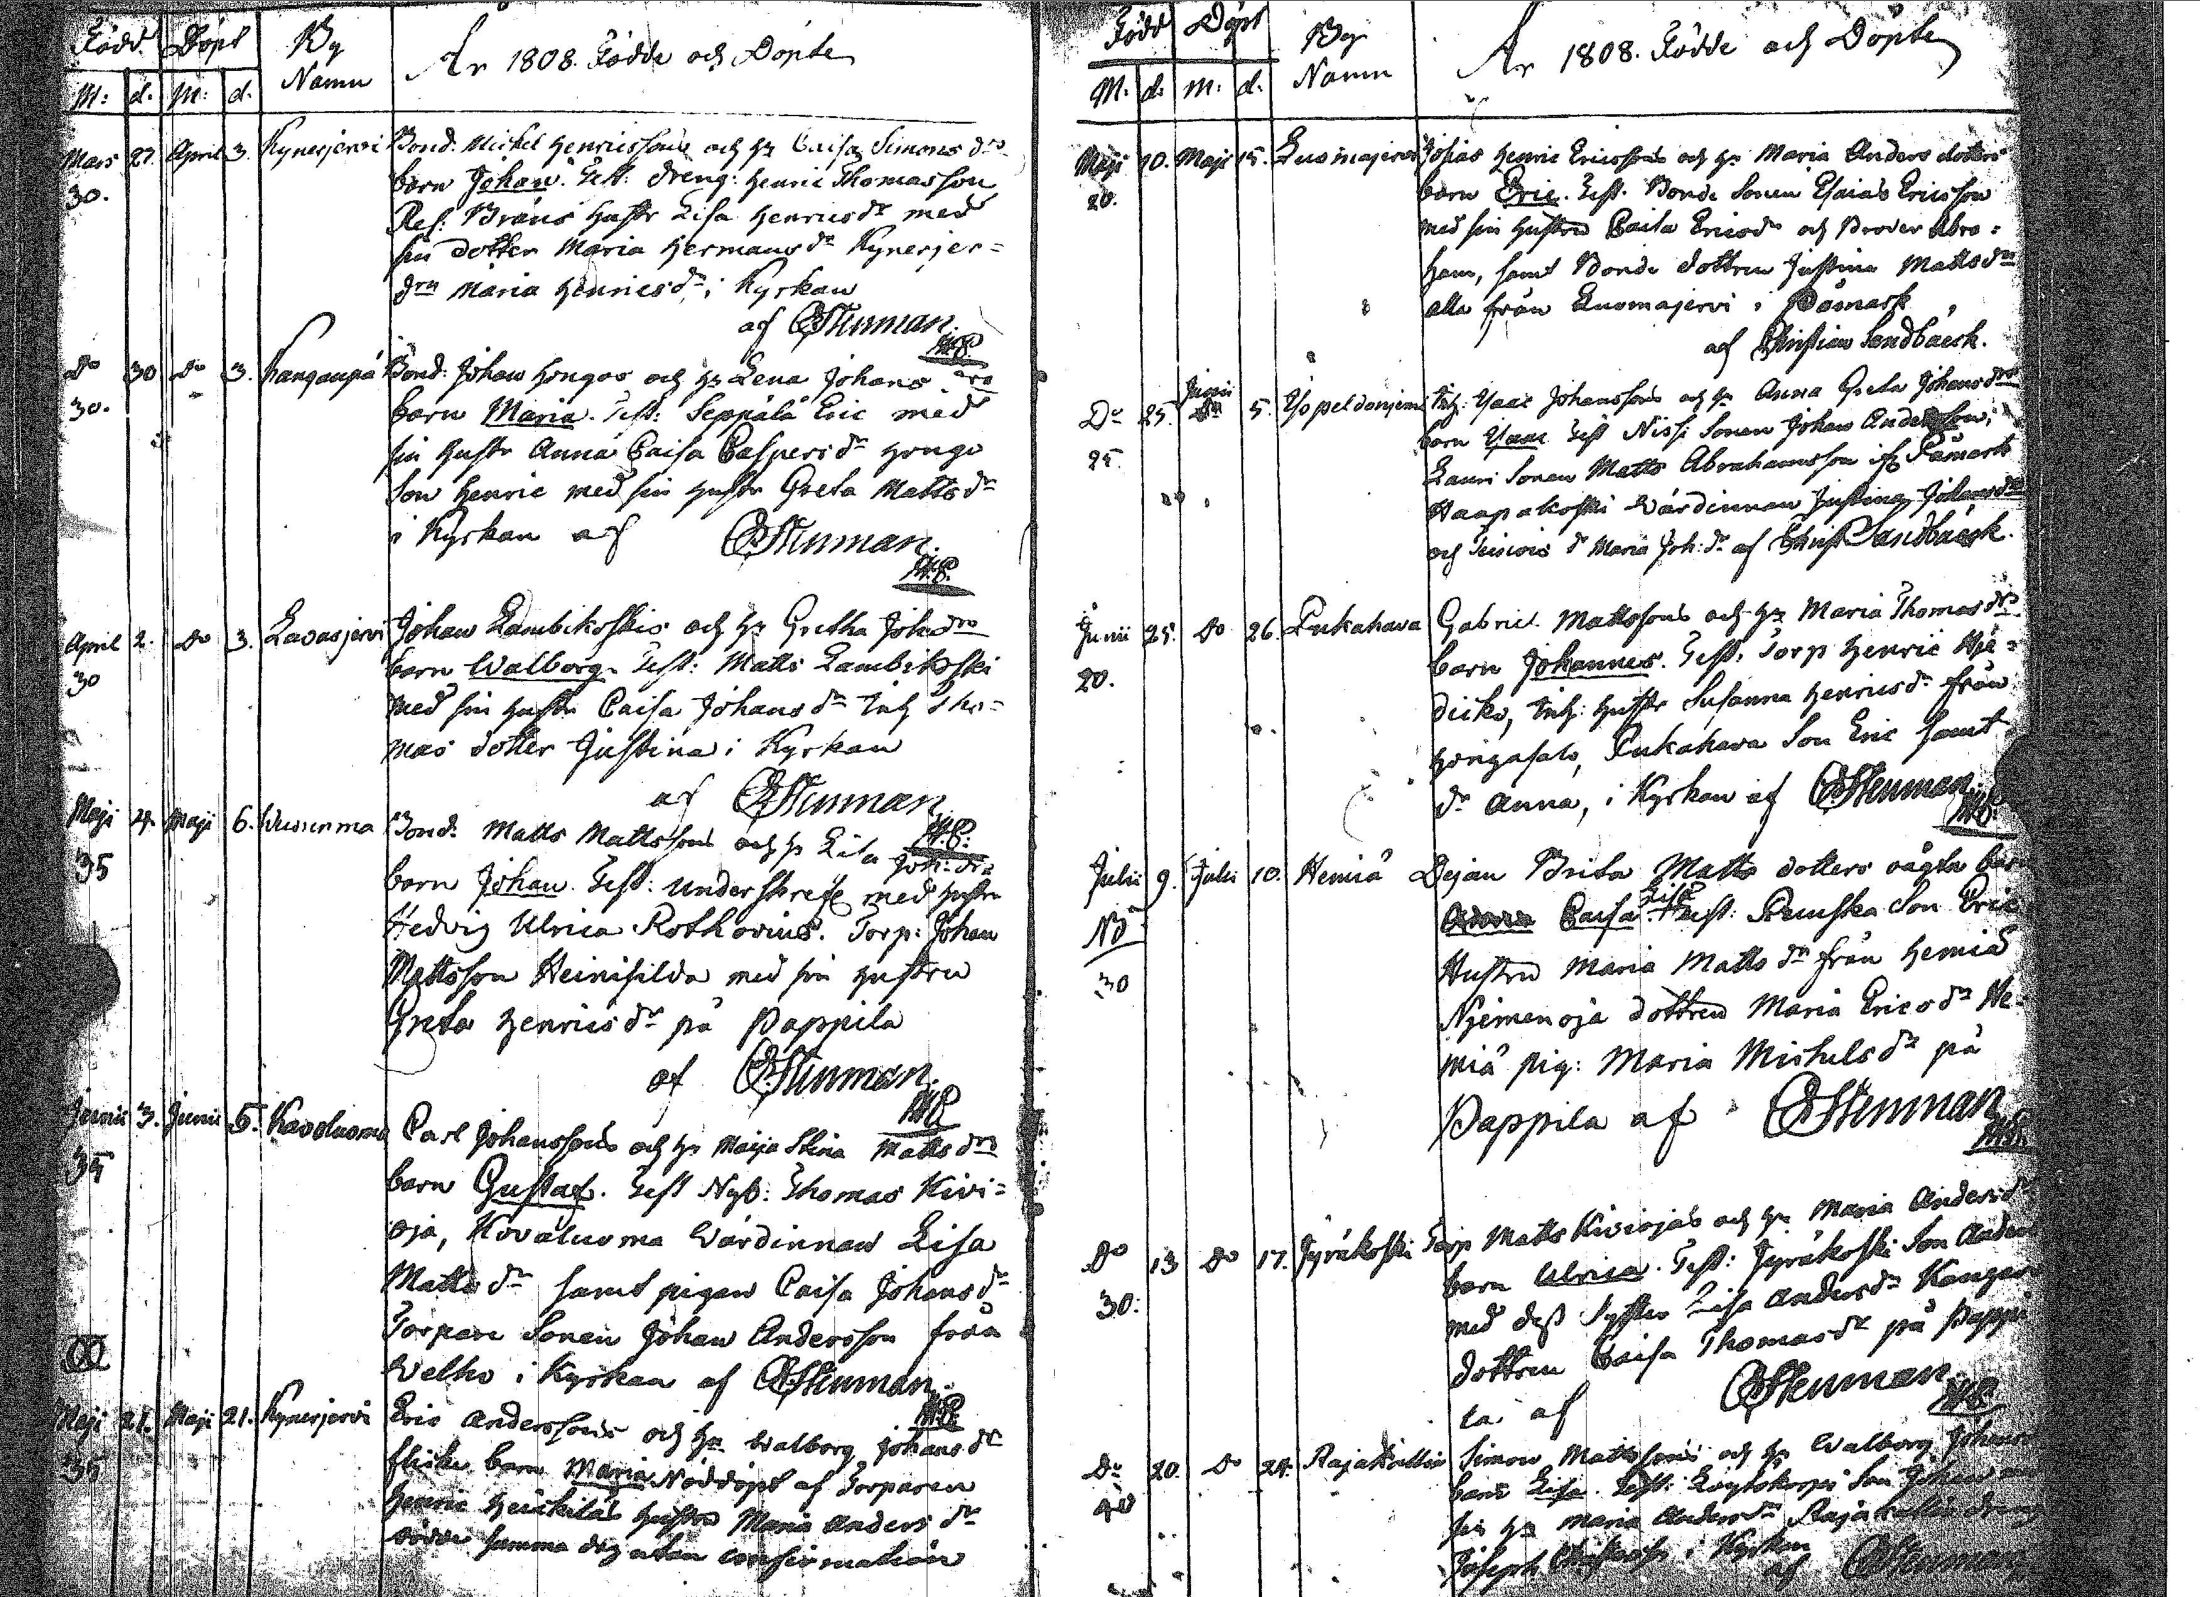 Född. Döpt By
Namn År 1808. Födde och Döpte
M: d. M: d.
Mars 27. April 3. Kynerjervi Bond: Michel Henricssons och h:u Caisa Simons d:rs
30. barn Johan. Test: dreng: Henric Thomasson
hustr Lisa Henricsd:r med
sin dotter Maria Hermansd:r Kynerjer=
Maria Henricsd:r i Kyrkan
af Stenman.
D:o 30 D:o 3. Kanganpä Bond: Johan Hongos och h:u Lena Johans d:rs
30. barn Maria. Test: Seppälä Eric med
sin hustr Anna Caisa Caspersd:r Hongo
Son Henric med sin hustr Greta Mattsd:r
i Kyrkan af Stenman.
April 2. D:o 3. Lavasjervi Johan Lambikoskis och h:u Gretha Joh:d:rs
30 barn Walborg. Test: Matts Lambikoski
med sin hustr Caisa Johansd:r Inh: Tho=
mas dotter Justina i Kyrkan
af Stenman.
Maji 4. Maji 6. Bond: Matts Mattssons och h:u Lisa Joh: d:rs
35 barn Johan. Test: underskrefne med hustru
Hedvig Ulrica Rothovius. Torp: Johan
Mattsson Heinisilda med sin hustru
Greta Henricsd:r på Pappila
af Stenman.
Junii 3. Junii 5. Kavoluoma Carl Johanssons och h:u Maija Stina Mattsd:rs
35 barn Gustaf. Test Nyb: Thomas Kivi=
oja, Kovaluoma Värdinnan Lisa
Mattsd:r samt pigan Caisa Johansd:r
Torpare Sonen Johan Andersson från
Welho i Kyrkan af Stenman.
Maji 21. Maji 21. Kynerjervi Eric Anderssons och h:u Walborg Johansd:rs
35 flicke barn Maria Nöddöpt af Torparen
Henric Heickiläs hustru Maria Andersd:r
dödde samma dag utan confirmation
Född Döpt By
Namn År 1808. Födde och Döpte
M. d. m: d.
Maji 10. Maji 15. Luomajervi Josias Henric Ericssons och h:u Maria Anders dotters
20. barn Eric. Test. Bonde Sonen Esaias Ericsson
med sin hustru Caisa Ericsd:r och Broder Abra=
ham, samt Bonde dottren Justina Mattsd:r
alla från Luomajervi i Påmark
af Christian Sandbäck.
D:o 25. Junii 5. Inh: Isaac Johanssons och h:u Anna Greta Johansd:rs
25. barn Isaac Test Nissi Sonen Johan Andersson,
Lauri Sonen Matts Abrahamsson if: Påmark
Haapakoski Värdinnan Justina Johansd:r
och d:r Maria Joh:d:r af Christ Sandbäck.
Junii 25. D:o 26. Pukahava Gabriel Mattssons och h:u Maria Thomasd:rs
20. barn Johannes. Test: Torp Henric Hie=
dicko, Inh: hustr Susanna Henricsd:r från
Hongasalo, Pukahava Son Eric samt
d:r Anna, i Kyrkan af Stenman.
Julii 9. Julii 10. Hemiä Dejan Brita Matts dotters oägta barn
N:o Caisa Lisa Test: Son Eric
30 Hustru Maria Mattsd:r från Hemiä
Njemenoja dottren Maria Ericsd:r He=
miä pig: Maria Michelsd:r på
Pappila af Stenman
D:o 13 D:o 17. Jyräkoski Torp Matts Kiviojas och h:u Maria Andersd:rs
30. barn Ulrica. Test: Jyräkoski Son Anders
med dess Syster Lisa Andersd:r
dottren Caisa Thomasd:r på Pappi
la af Stenman.
D:o 20. D:o 24. Rajakallio Simon Mattssons och h:u Walborg Johans
barn Lisa. Test: Son Johan
sin h:u Maria Andersd:r Rajakallio dreng
Joseph i Kyrkan
af Stenman